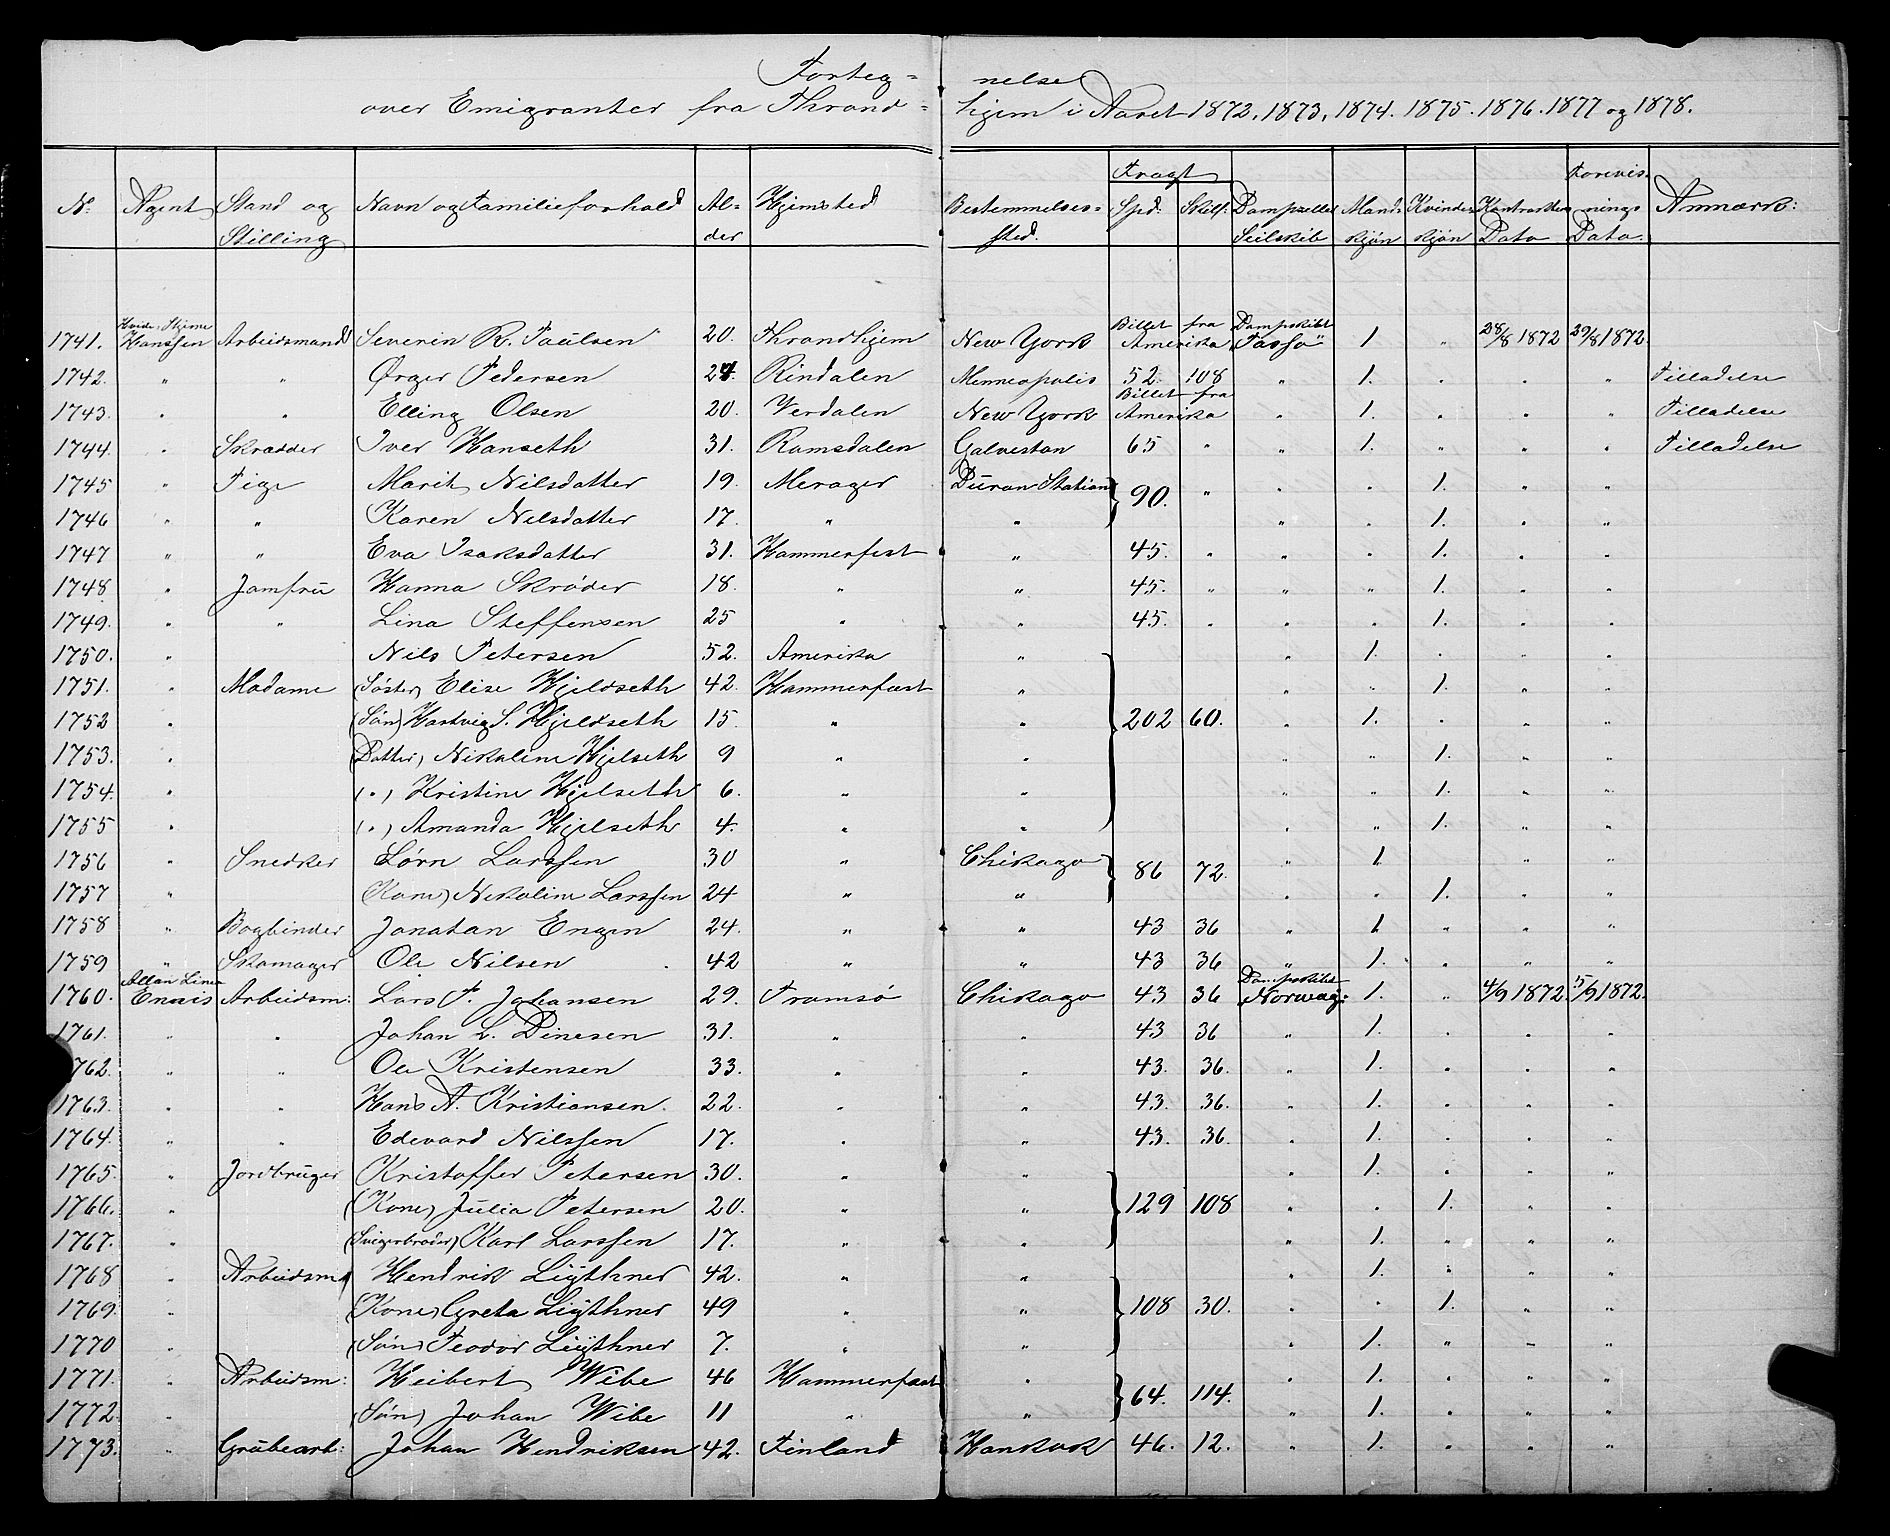 Forteg= nelse
over Emigranter fra Thrond= hjem i Aaret 1872, 1873, 1874. 1875. 1876. 1877 og 1878.
No. Agent Stand og Stilling Navn og Familieforhold Al-der Hjemsted Bestemmelses-sted. Fragt Spd: Skill: Dampsellel Seilskib Mand-kjøn Kvinde-kjøn Kontraktens Dato Forevis-nings Dato. Anmærk:
1741. Hvide Stjerne Hanssen Arbeidsmand Severin R. Paulsen 20. Throndhjem New York Billet fra Amerika Dampskibt "Tasso" 1 " 28/8 1872 29/8 1872
1742. " " Ørger Pedersen 24. Rindalen Menneapolis 52. 108 " 1. " " " Tilladelse
1743. " " Elling Olsen 20. Verdalen New York Billet fra Amerika " 1. " " " Tilladelse
1744. " Skrædder Iver Hanseth 31. Romsdalen Galveston 65 " " 1. " " " Tilladelse
1745 " Pige Marit Nilsdatter 19. Merager Duran Station } 90. " " " 1. " "
1746 " " Karen Nilsdatter 17. " " " " 1. " "
1747 " " Eva Isaksdatter 31. Hammerfest " 45. " " " 1. " "
1748 " Jomfru Hanna Skrøder 18. " " 45. " " " 1. " "
1749. " " Lina Steffensen 25 " " 45. " " " 1. " "
1750. " Nils Petersen 52. Amerika " " 1. " " "
1751. " Madame (Søster) Elise Hjeldseth 42. Hammerfest " " " 1. " "
1752 " (Søn) Hartvig S. Hjeldseth 15. " " } 202 60. " 1. " " "
1753. " (Datter) Nikoline Hjelseth 9 " " " " 1. " "
1754. " (") Kristine Hjelseth 6. " " " " 1. " "
1755 " (") Amanda Hjelseth 4. " " " " 1. " "
1756 " Snedker Sørn Larssen 30 " Chikago } 86 72. " 1 " "
1757 " (Kone) Nikoline Larssen 24 " " " " 1. " "
1758 " Bogbinder Jonatan Engen 24. " " 43 36 " 1 " " "
1759 " Skomager Ole Nilsen 42 " " 43 36 " 1. " " "
1760. Allan Linie Ennis Arbeidsm: Lars P. Johansen 29. Tromsø Chikago 43 36 Dampskibet "Norway" 1. " 4/9 1872 5/9 1872.
1761. " " Johan L. Dinesen 31. " " 43 36 " 1. " " "
1762. " " Ole Kristensen 33. " " 43. 36. " 1. " " "
1763. " " Hans A. Kristiansen. 22. " " 43. 36. " 1. " " "
1764. " " Edevard Nilssen 17. " " 43. 36. " 1. " " "
1765. " Jordbruger Kristoffer Petersen 30. " " " 1. " " "
1766. " (Kone) Julia Petersen 20. " " } 129 108 " " 1. " "
1767. " (Svigerbroder) Karl Larssen 17. " " " 1. " " "
1768 " Arbeidsm: Hendrik Ligthner 42. " " " 1. " " "
1769. " (Kone) Greta Ligthner 49 " " } 108 30. " " 1. " "
1770 " (Søn) Teodor Ligthner 7. " " " 1. " " "
1771. " Arbeidsm: Heibert Wibe 46 Hammerfest " } 64. 114. " 1. " " "
1772. " (Søn) Johan Wibe 11 " " " 1. " " "
1773. " Grubearb: Johan Hendriksen 42. Finland Hankok 46. 12. " 1. " " "